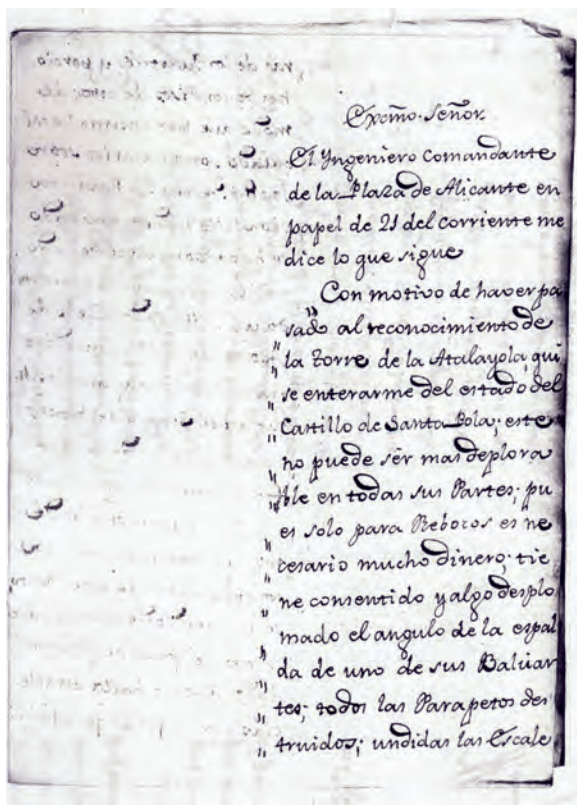 Excmo. Señor.
El Yngeniero Comandante
de la Plaza de Alicante en
papel de 21 del corriente me
dice lo que sigue
Con motivo de haver pa
" sado al reconocimiento de
" la torre de la Atalayola, qui
" se enterarme del estado del
" Castillo de Santa Pola; este
" no puede sér mas deplora
" ble en todas sus Partes; pu
" es solo para Rebocos es ne
" cesario mucho dinero; tie
" ne consentido y algo desplo
" mado el angulo de la espal
" da de uno de sus Baluar
" tes; todos las Parapetos des
" truidos; undidas las Escale